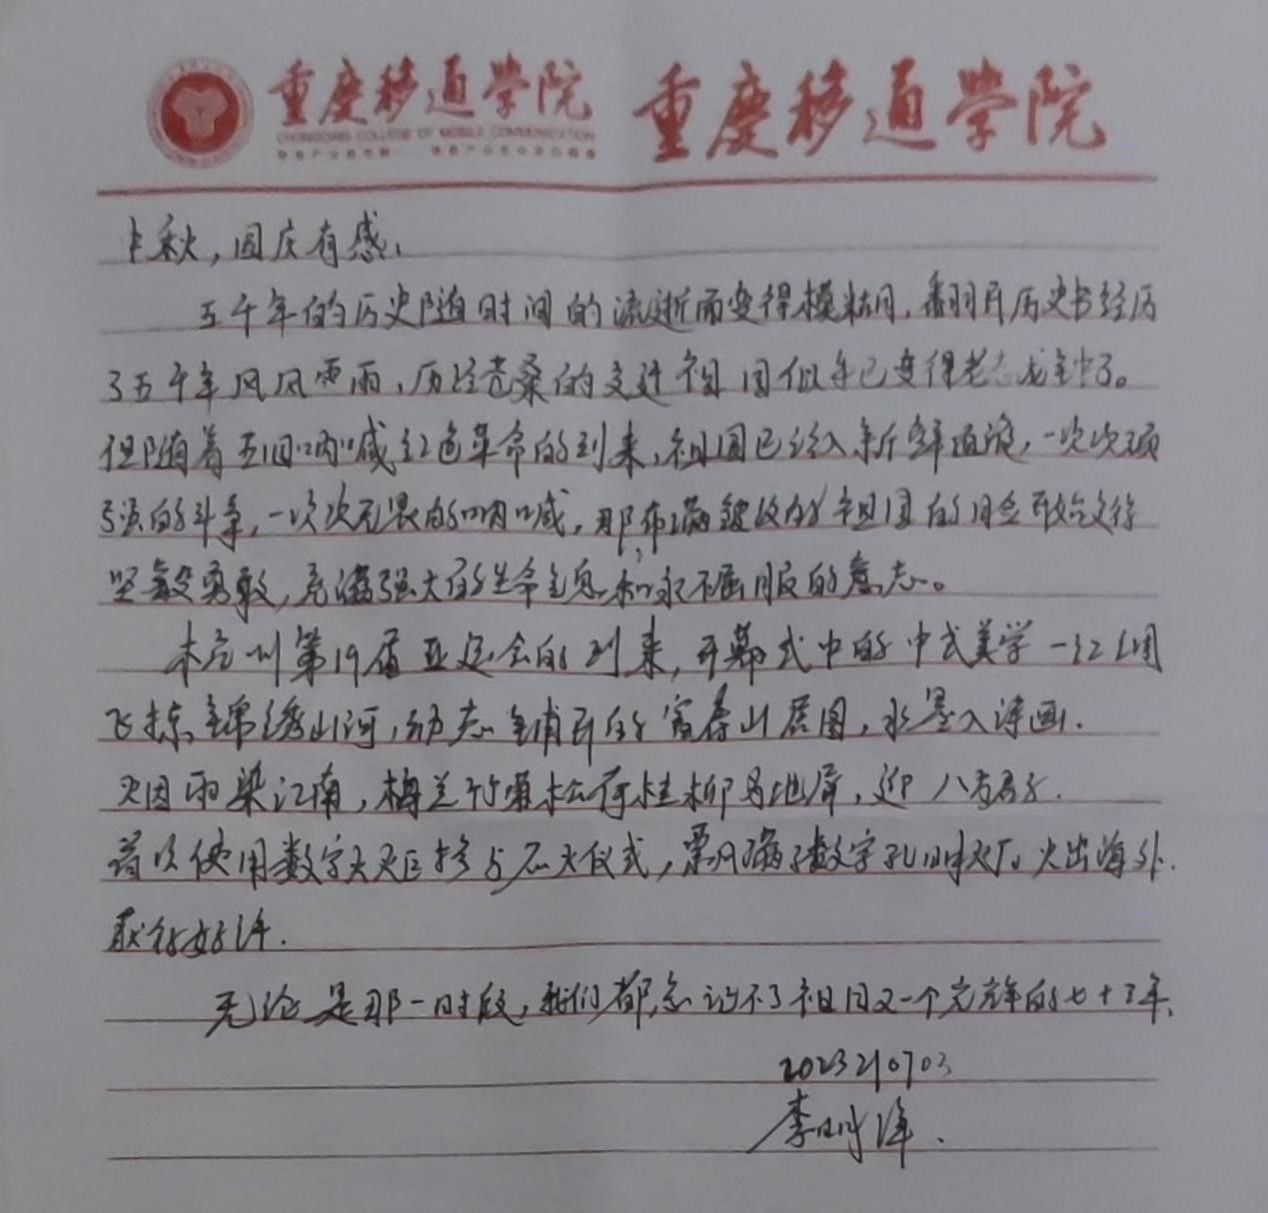 重庆移通学院 重庆移通学院
CHONGQING COLLEGE OF MOBILE COMMUNICATION
中秋,国庆有感.
五千年的历史随时间的流逝而变得模糊,翻开历史书经历
了五千年风风雨雨,历经苍桑的变迁祖国似乎已变得老态龙钟了。
但随着五四呐喊红色革命的到来,祖国已经入新鲜血液,一次次顽
强的斗争,一次次无畏的呐喊,那布满皱纹的祖国的脸开始变得
坚毅勇敢,充满强大的生命气息和永不屈服的意志。
杭州第19届亚运会的到来,开幕式中的中式美学一
飞掠锦绣山河,动态铺开的富春山居图,水墨入诗画.
烟雨染江南,梅兰竹菊松荷桂柳,迎八方
首次使用数字火炬手参与点火仪式,飘满了数字孔明灯。火出海外.
获得好评.
无论是那一时段,我们都忘记不了祖国又一个光辉的七十
2023
李